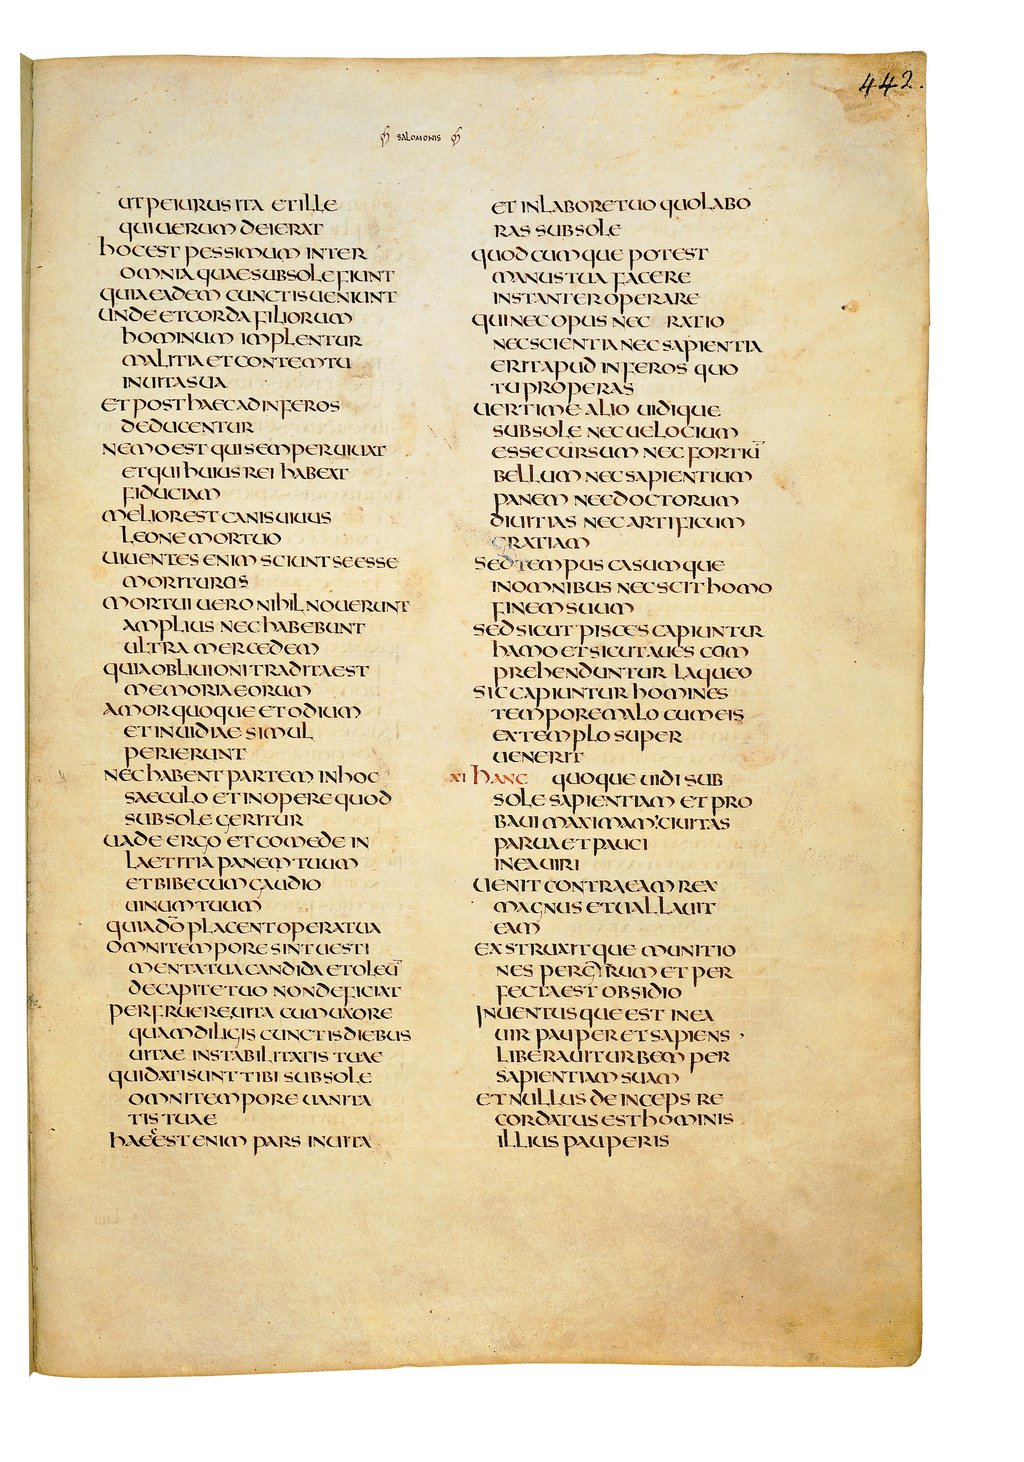 442.
SALOMONIS
ut peiurus ita et ille
qui uerum deierat
hoc est pessimum inter
omnia quae sub sole fiunt
quia eadem cunctis ueniunt
unde et corda filiorum
hominum implentur
malitia et contemtu
in uita sua
et post haec ad inferos
deducentur
nemo est qui semper uiuat
et qui huius rei habeat
fiduciam
melior est canis uiuus
leone mortuo
uiuentes enim sciunt se esse
morituros
mortui uero nihil nouerunt
amplius nec habebunt
ultra mercedem
quia obliuioni tradita est
memoria eorum
amor quoque et odium
et inuidiae simul
perierunt
nec habent partem in hoc
saeculo et in opere quod
sub sole geritur
uade ergo et comede in
laetitia panem tuum
et bibe cum gaudio
uinum tuum
quia dō placent opera tua
omni tempore sint uesti
menta tua candida et oleū
de capite tuo non deficiat
perfruere uita cum uxore
quam diligis cunctis diebus
uitae instabilitatis tuae
qui dati sunt tibi sub sole
omni tempore uanita
tis tuae
haec est enim pars in uita
et in labore tuo quo labo
ras sub sole
quodcumque potest
manus tua facere
instanter operare
qui nec opus nec ratio
nec scientia nec sapientia
erit apud inferos quo
tu properas
uerti me alio uidique
sub sole nec uelocium
esse cursum nec fortiū
bellum nec sapientium
panem nec doctorum
diuitias nec artificum
gratiam
sed tempus casumque
in omnibus nescit homo
finem suum
sed sicut pisces capiuntur
hamo et sicut aues com
prehenduntur laqueo
sic capiuntur homines
tempore malo cum eis
extemplo super
uenerit
XI hanc quoque uidi sub
sole sapientiam et pro
baui maximam: ciuitas
parua et pauci
in ea uiri
uenit contra eam rex
magnus et uallauit
eam
exstruxitque munitio
nes per gyrum et per
fecta est obsidio
inuentusque est in ea
uir pauper et sapiens
liberauit urbem per
sapientiam suam
et nullus deinceps re
cordatus est hominis
illius pauperis